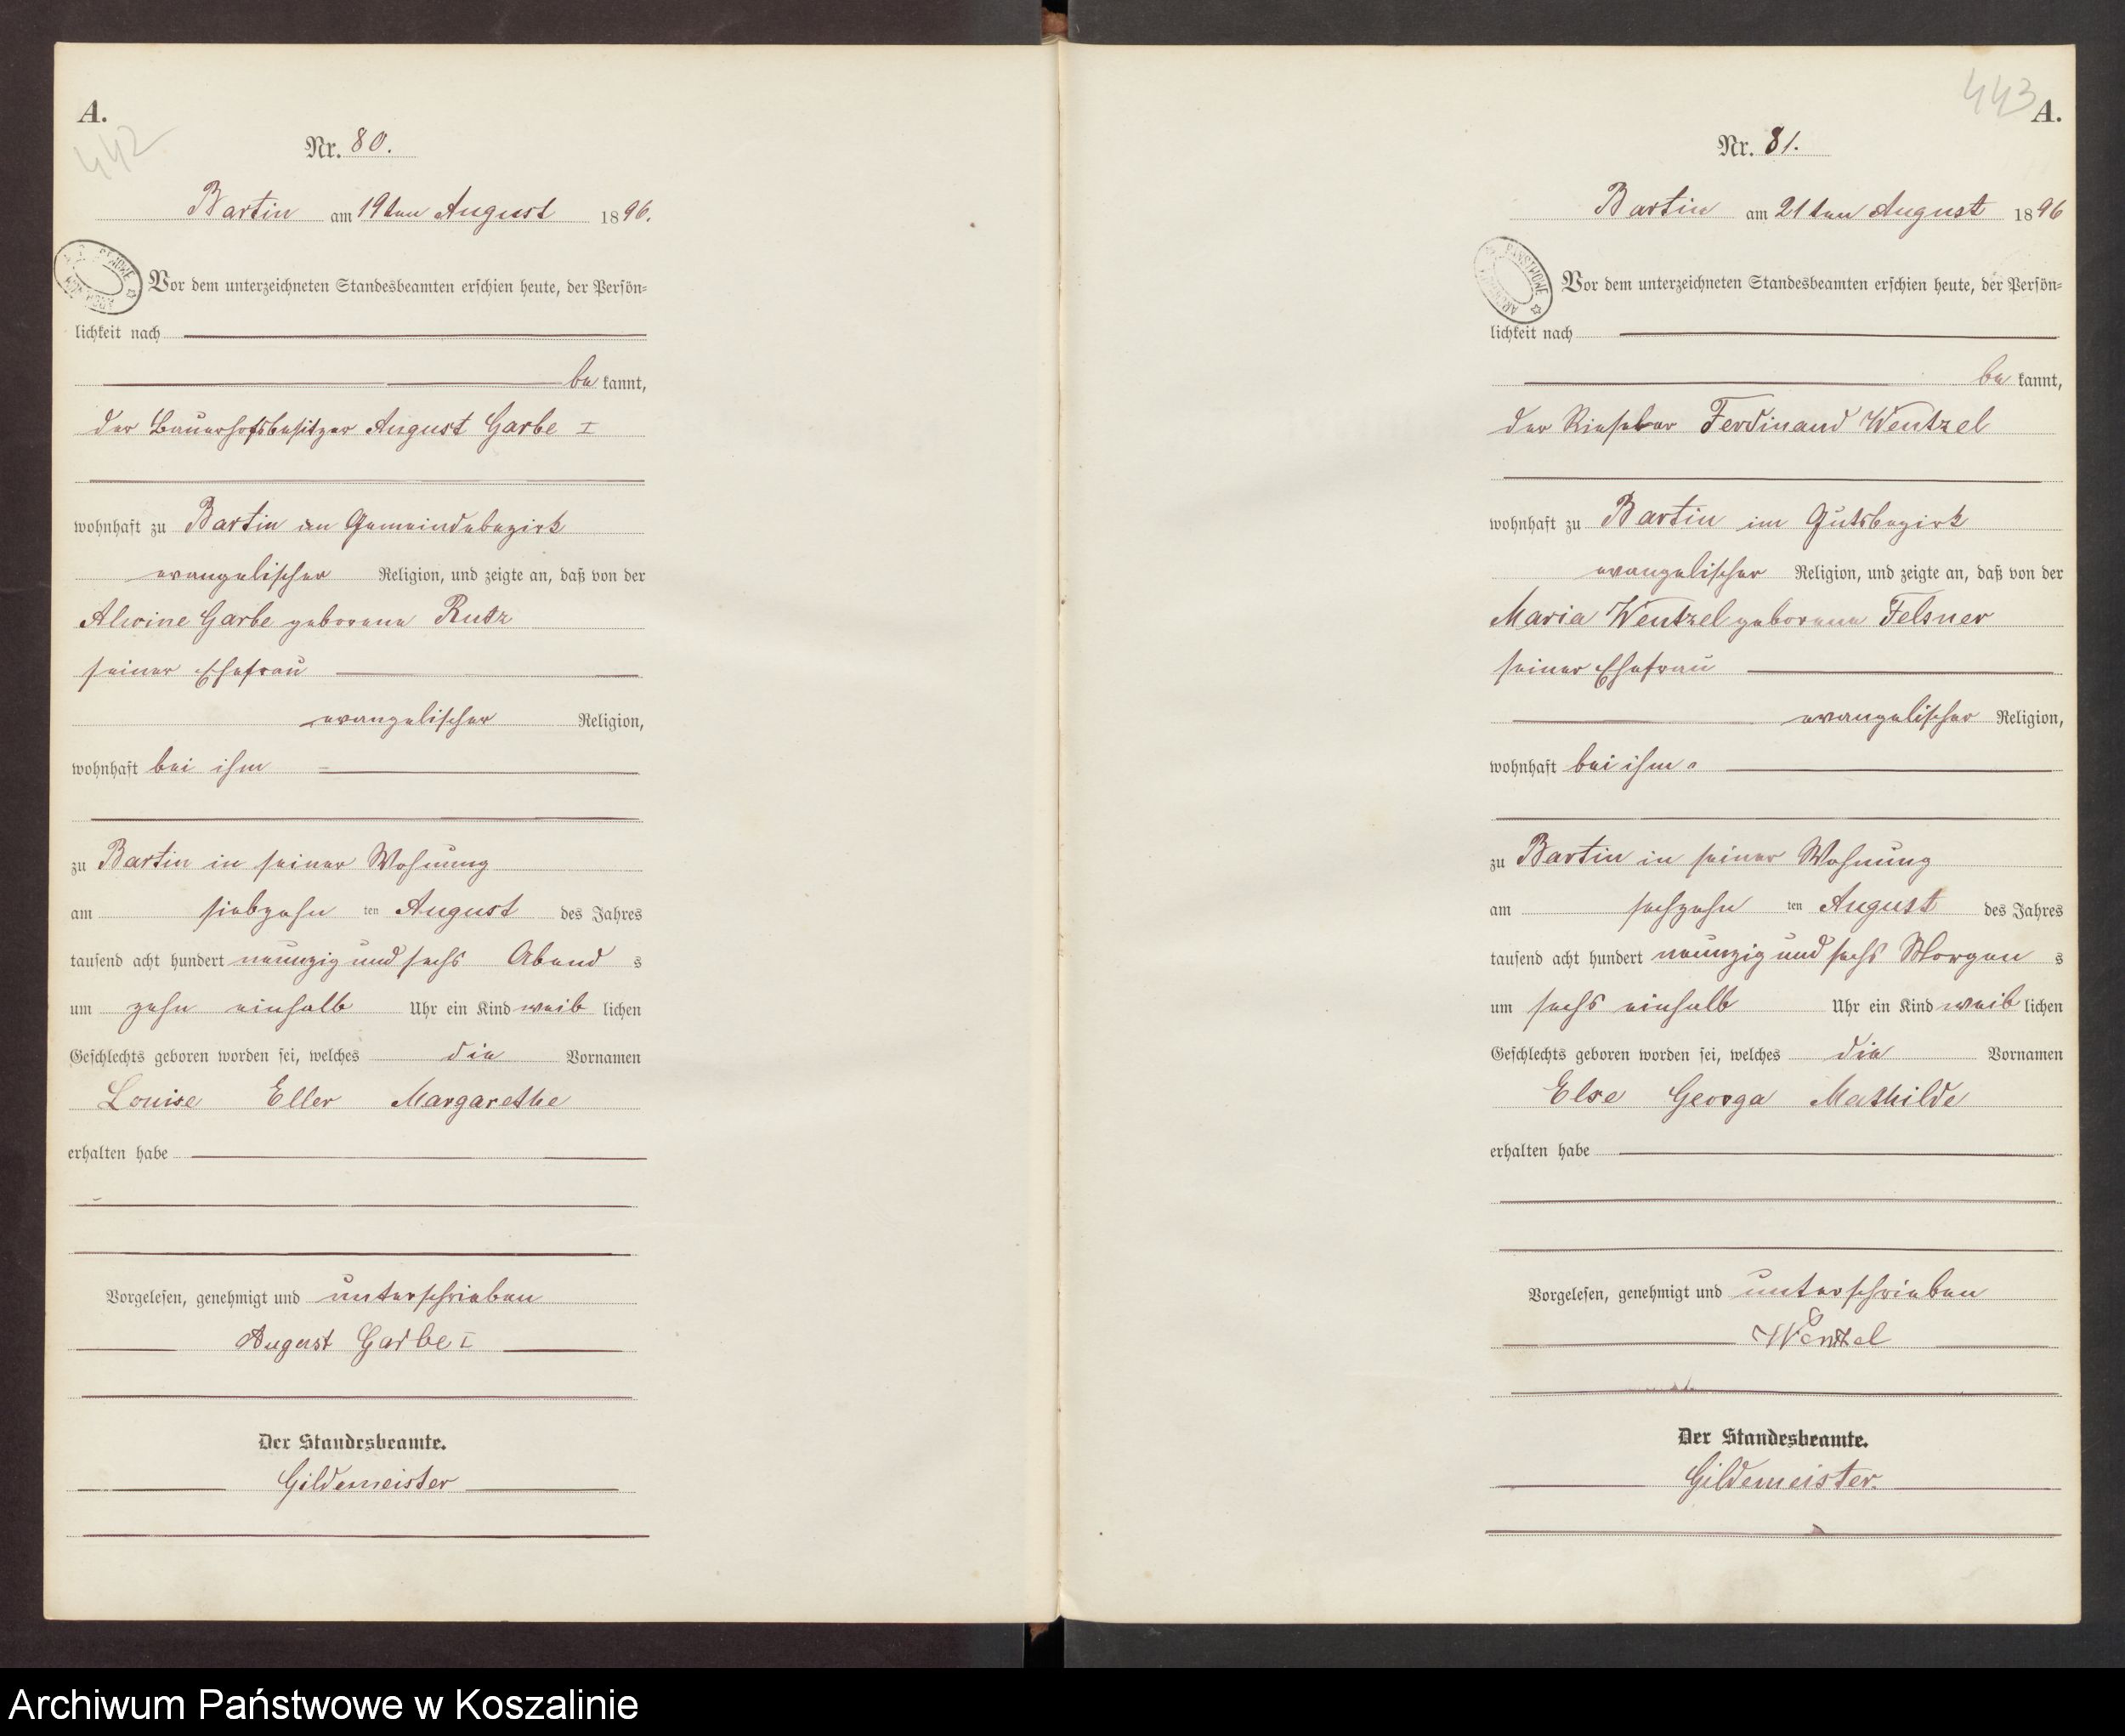 A.
442
Nr. 80.
Bartin am 19ten August 1896.
Vor dem unterzeichneten Standesbeamten erschien heute, der Persön-
lichkeit nach
be kannt,
der Bauerhofsbesitzer August Garbe I
wohnhaft zu Bartin im Gemeindebezirk
evangelischer Religion, und zeigte an, daß von der
Alwine Garbe geborene Rutz
seiner Ehefrau
evangelischer Religion,
wohnhaft bei ihm
zu Bartin in seiner Wohnung
am siebzehn ten August des Jahres
tausend acht hundert neunzig und sechs Abend s
um zehn einhalb Uhr ein Kind weib lichen
Geschlechts geboren worden sei, welches die Vornamen
Louise Eller Margarethe
erhalten habe
Vorgelesen, genehmigt und unterschrieben
August Garbe I
Der Standesbeamte.
Gildemeister
443
A.
Nr. 81.
Bartin am 21ten August 1896
PAŃSTWOWE
Vor dem unterzeichneten Standesbeamten erschien heute, der Persön-
lichkeit nach
be kannt,
der Ferdinand Wentzel
wohnhaft zu Bartin im Gutsbezirk
evangelischer Religion, und zeigte an, daß von der
Maria Wentzel geborene Felsner
seiner Ehefrau
evangelischer Religion,
wohnhaft bei ihm
zu Bartin in seiner Wohnung
am sechzehn ten August des Jahres
tausend acht hundert neunzig und sechs Morgen s
um sechs einhalb Uhr ein Kind weib lichen
Geschlechts geboren worden sei, welches die Vornamen
Else Georga Mathilde
erhalten habe
Vorgelesen, genehmigt und unterschrieben
Wentzel
Der Standesbeamte.
Gildemeister.
Archiwum Państwowe w Koszalinie